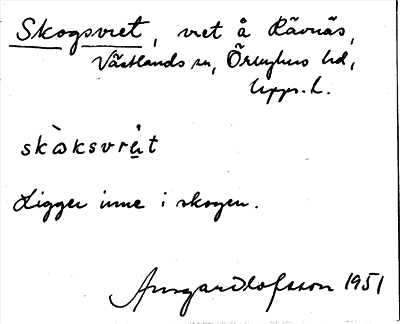 Skogsvret, vret å Rävnäs,
Västlands sn, Örbyhus hd,
Upps. l.
skὼksvrὲt
Ligger inne i skogen.
Ansgar Olofsson 1951